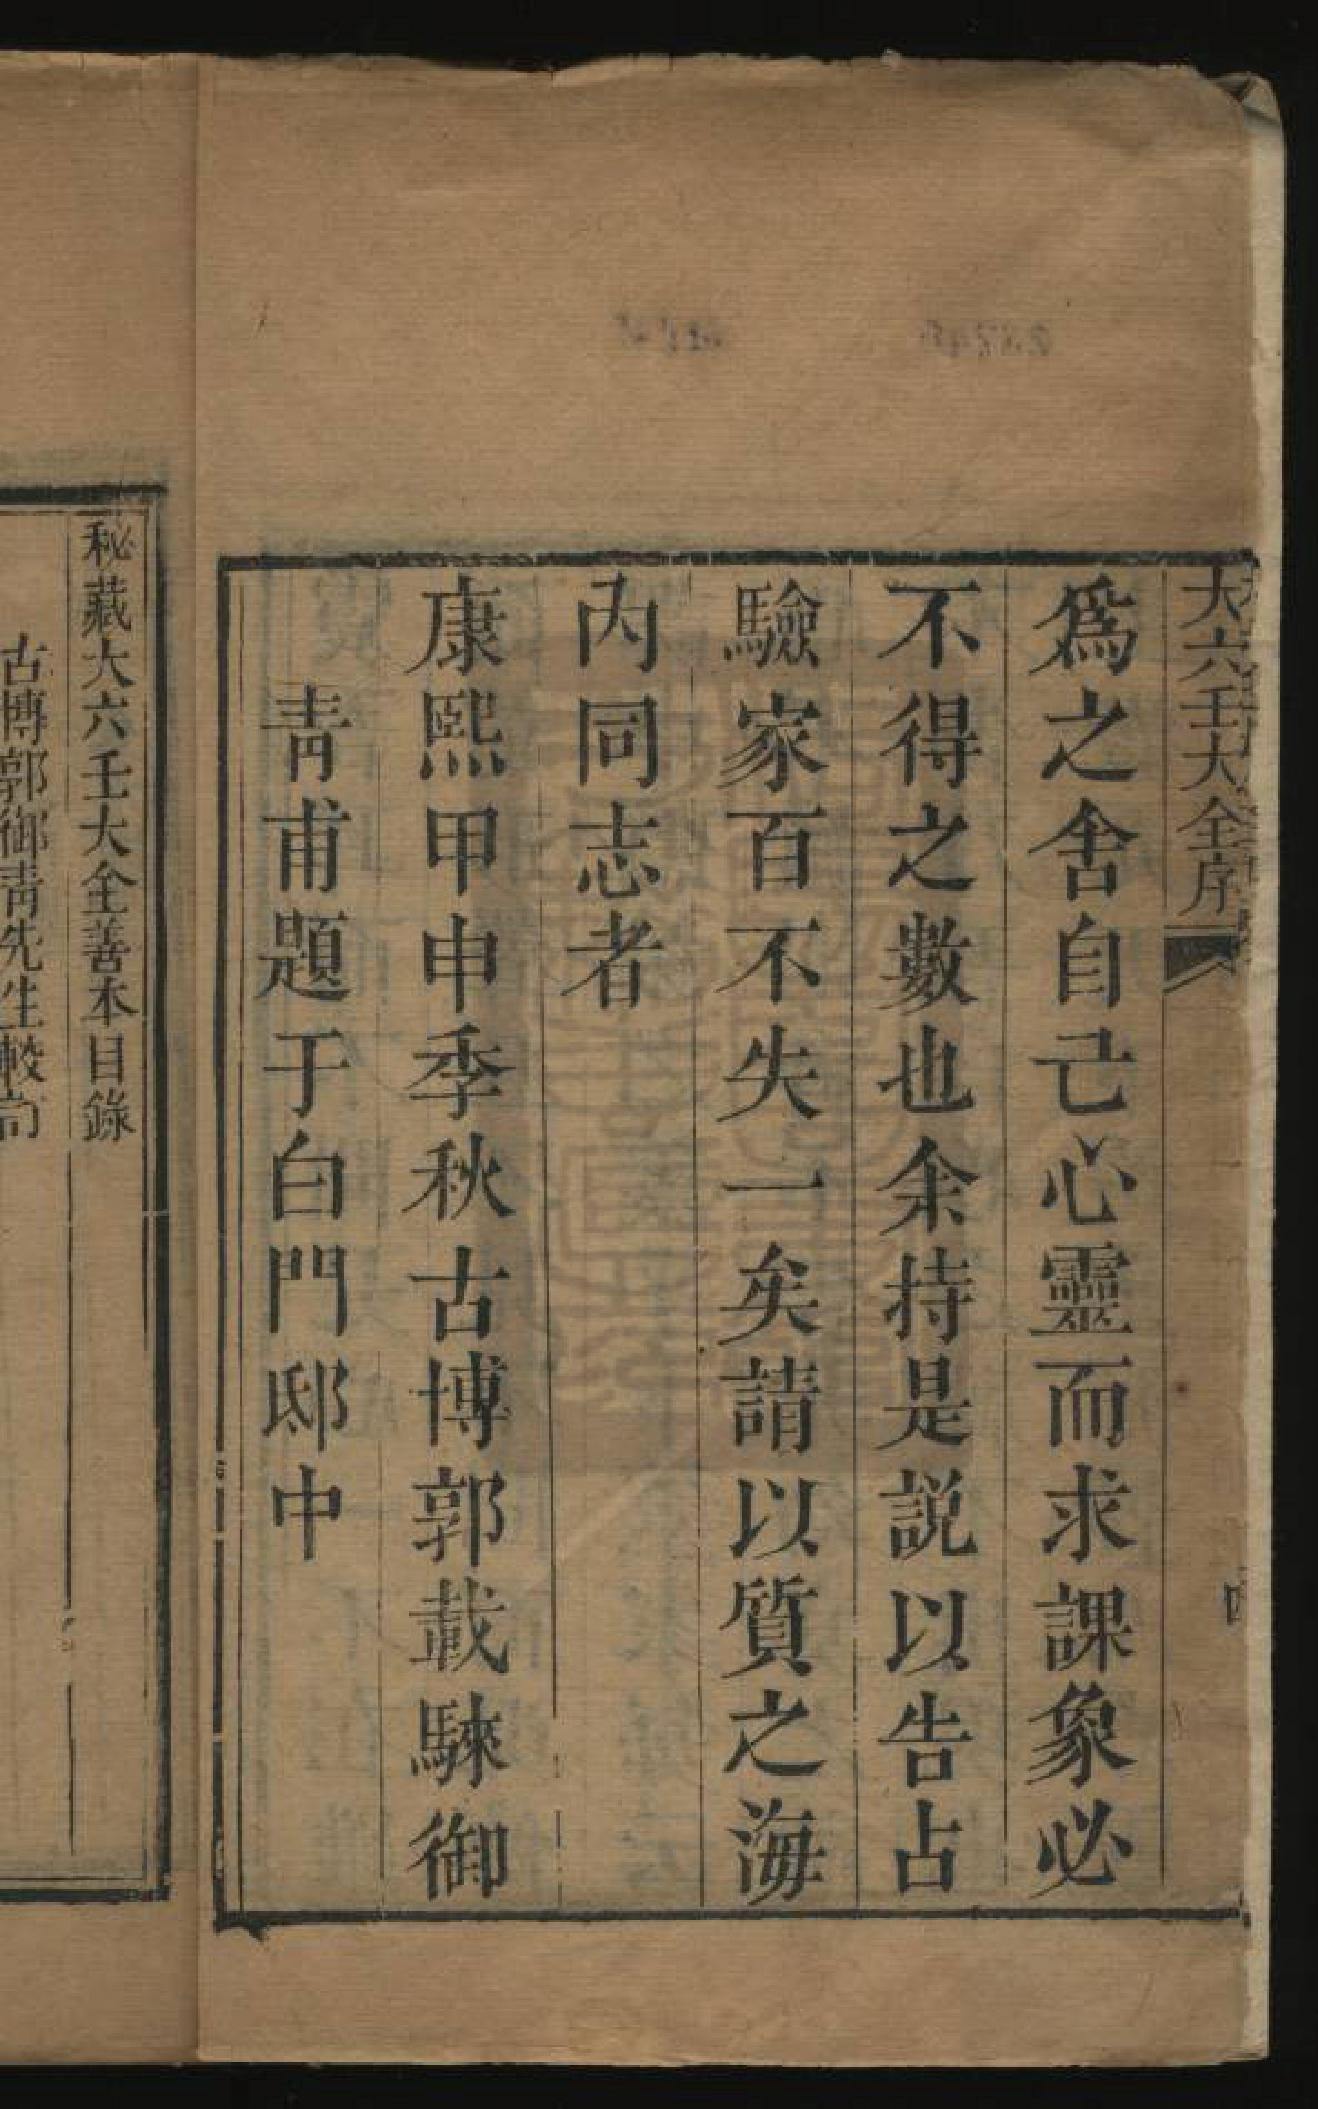 大六壬大全序
四
爲之舍自己心靈而求課象必
不得之數也余持是説以告占
驗家百不失一矣請以質之海
內同志者
康熙甲申季秋古博郭載騋御
靑甫題于白門邸中
秘藏大六壬大全善本目錄
古博郭御靑先生較向